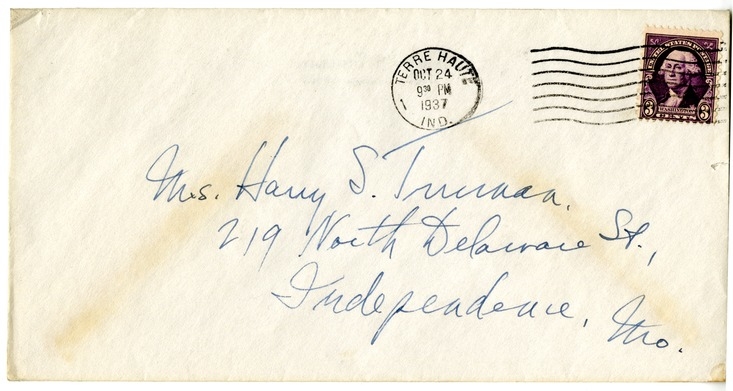 TERRE HAUTE
OCT 24
9³⁰ PM
1937
1 IND.
UNITED STATES POSTAGE
3 WASHINGTON 3
CENTS
Mrs. Harry S. Truman,
219 North Delaware St.,
Independence, Mo.